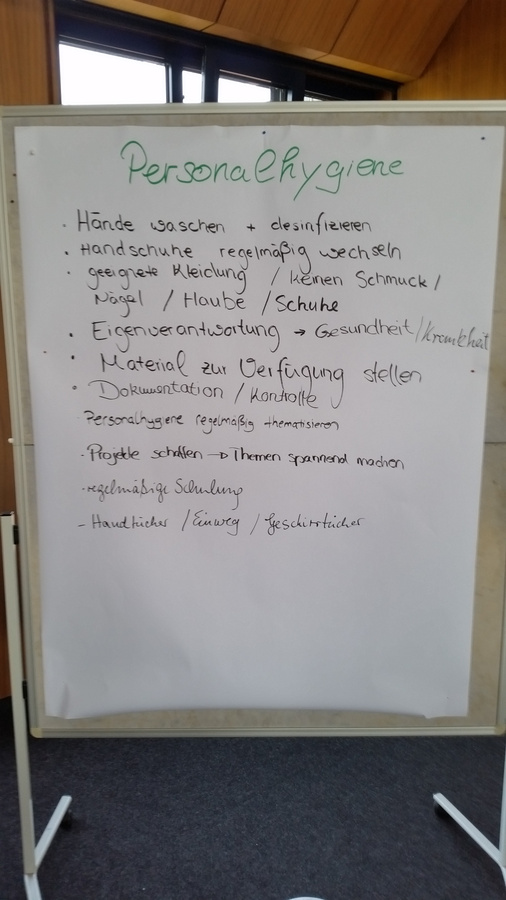 Personalhygiene
· Hände waschen + desinfizieren
· Handschuhe regelmäßig wechseln
· geeignete Kleidung / keinen Schmuck /
Nägel / Haube / Schuhe
· Eigenverantwortung → Gesundheit/Krankheit
· Material zur Verfügung stellen
· Dokumentation / Kontrolle
· Personalhygiene regelmäßig thematisieren
· Projekte schaffen → Themen spannend machen
· regelmäßige Schulung
- Handtücher / Einweg / Geschirrtücher